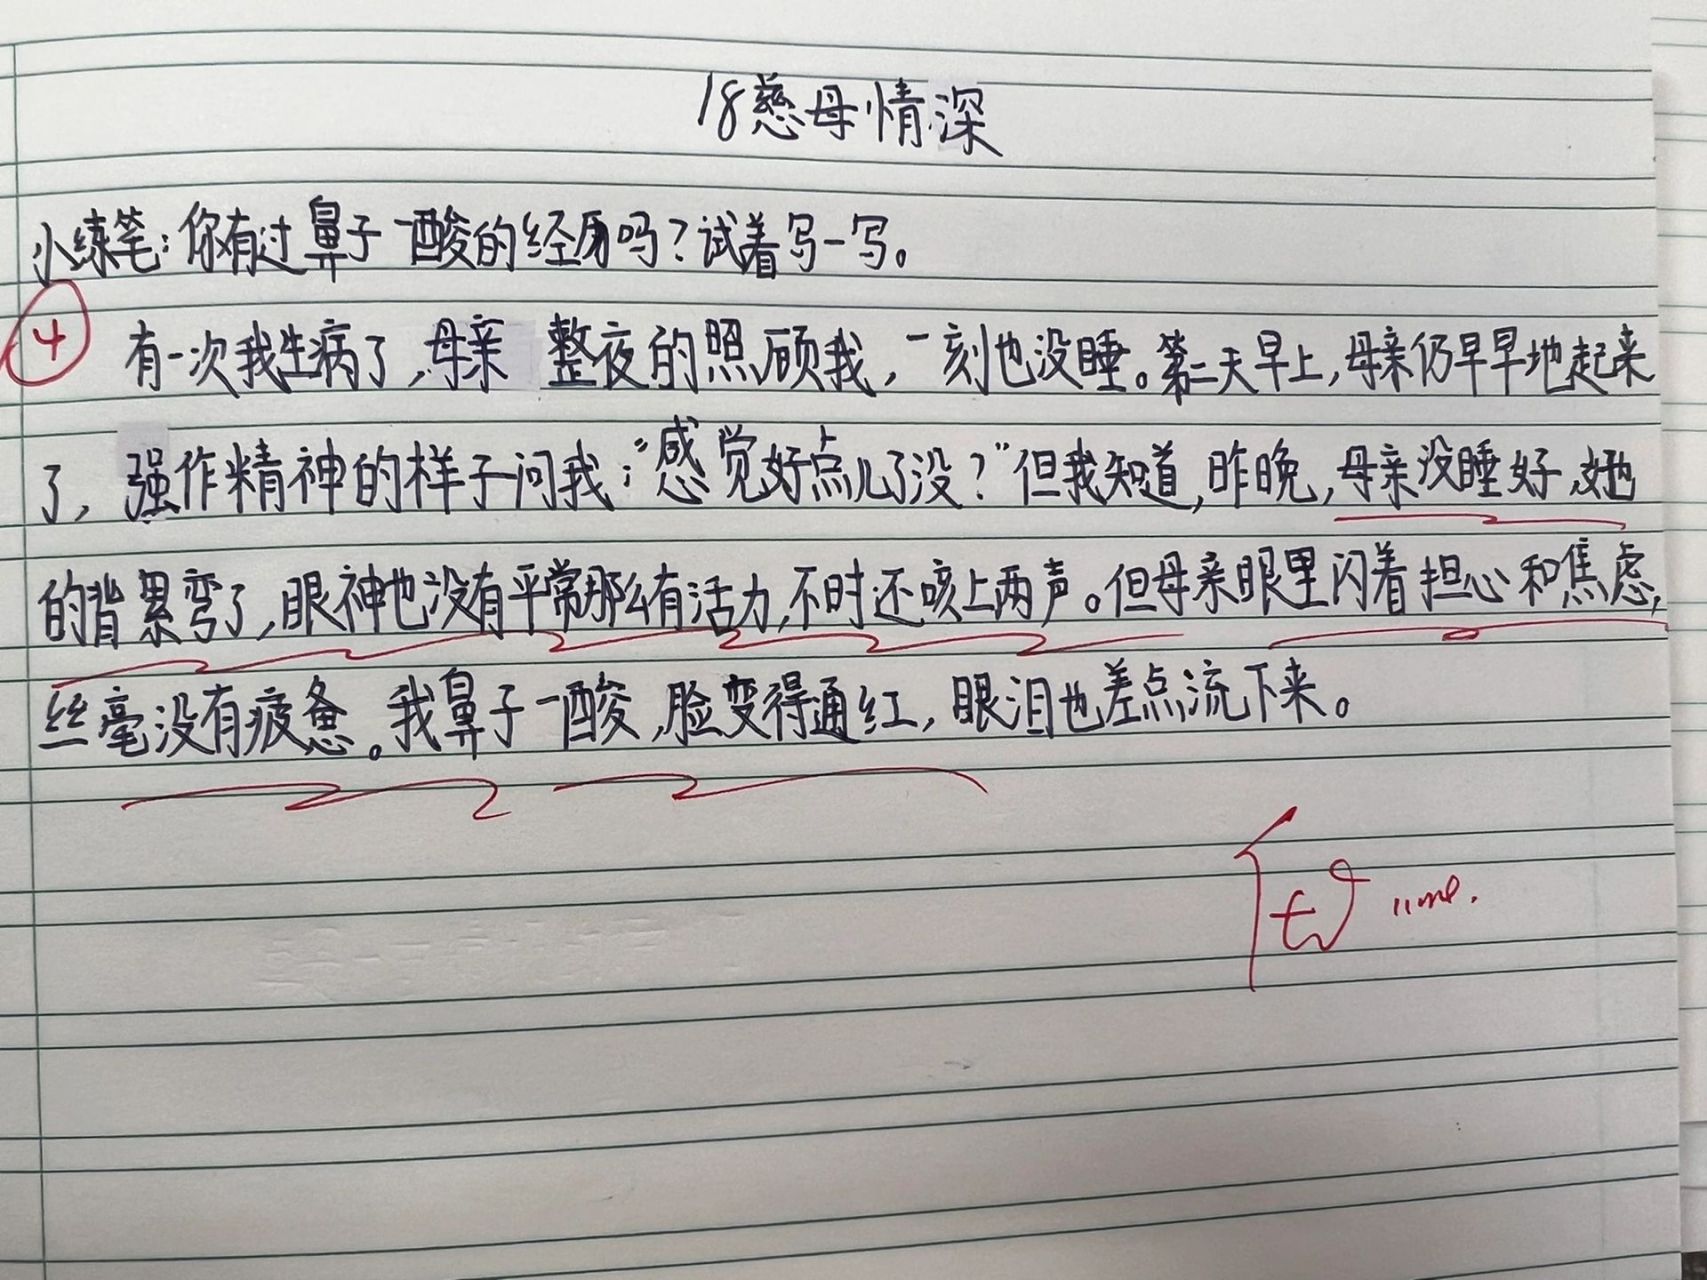 18慈母情深
小练笔：你有过鼻子一酸的经历吗？试着写一写。
④
有一次我生病了，母亲整夜的照顾我，一刻也没睡。第二天早上，母亲仍早早地起来
了，强作精神的样子问我：“感觉好点儿了没？”但我知道，昨晚，母亲没睡好，她
的背累弯了，眼神也没有平常那么有活力，不时还咳上两声。但母亲眼里闪着担心和焦虑，
丝毫没有疲惫。我鼻子一酸，脸变得通红，眼泪也差点流下来。